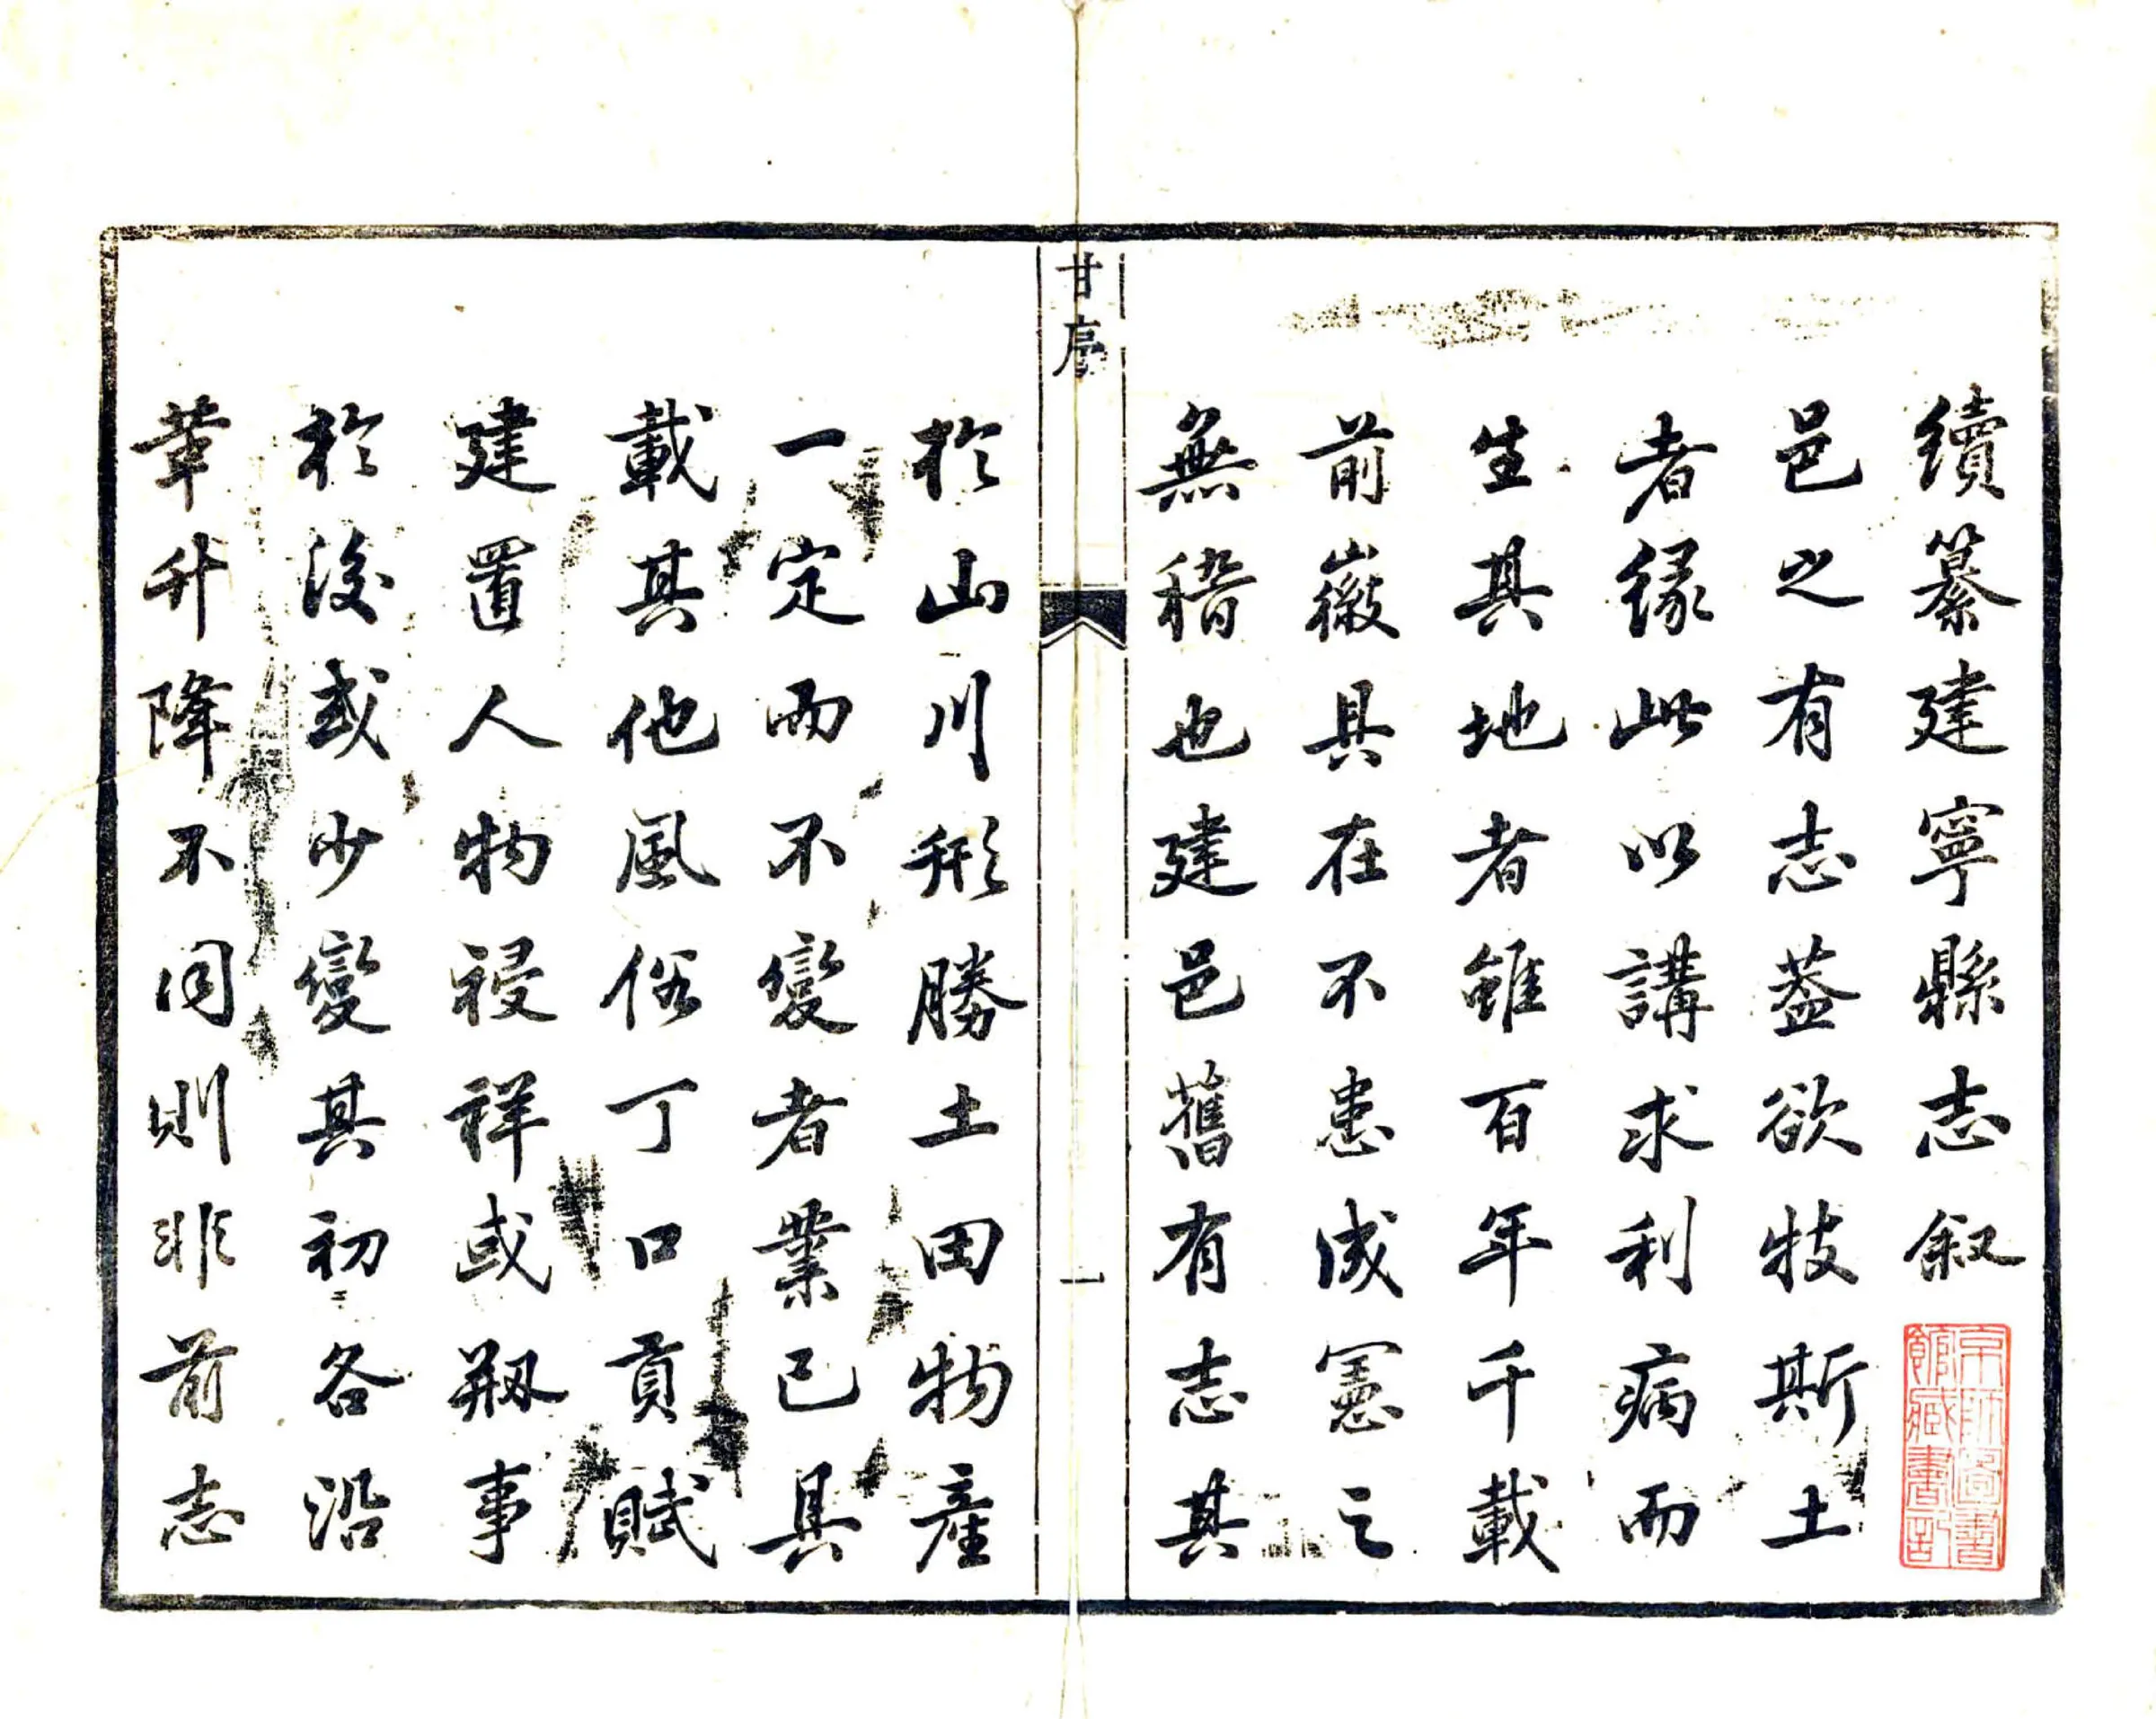 續纂建寧縣志叙
邑之有志葢欲牧斯土
者緣此以講求利病而
生其地者雖百年千載
前徽具在不患成憲之
無稽也建邑舊有志其
甘序
一
於山川形勝土田物產
一定而不變者業已具
載其他風俗丁口貢賦
建置人物祲祥或剏事
於後或少變其初各沿
革升降不同則非前志
京師圖書
館藏書記